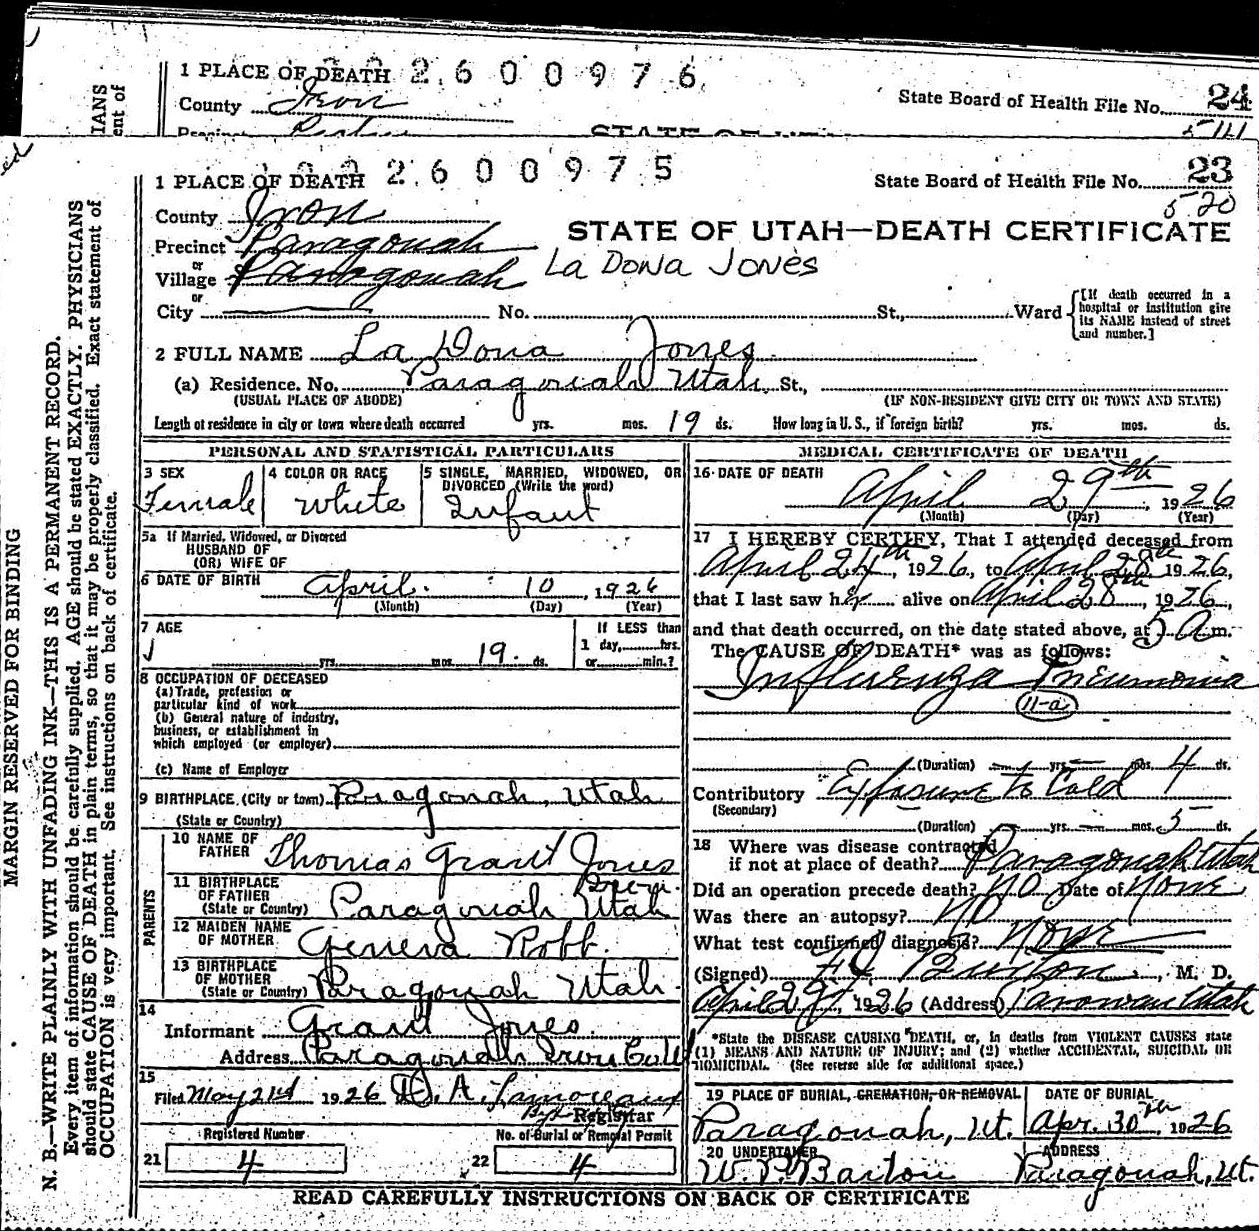 1 PLACE OF DEATH 0 2 6 0 0 9 7 6
County Iron
State Board of Health File No. 24
Precinct
STATE OF
1 PLACE OF DEATH 0 2 6 0 0 9 7 5
State Board of Health File No. 23
520
County Iron
STATE OF UTAH—DEATH CERTIFICATE
Precinct Paragonah
or
Village Paragonah
La Dona Jones
or
City No. St., Ward
[If death occurred in a
hospital or institution give
its NAME instead of street
and number.]
2 FULL NAME La Dona Jones
(a) Residence. No. Paragonah Utah St.,
(USUAL PLACE OF ABODE) (IF NON-RESIDENT GIVE CITY OR TOWN AND STATE)
Length of residence in city or town where death occurred yrs. mos. 19 ds. How long in U. S., if foreign birth? yrs. mos. ds.
PERSONAL AND STATISTICAL PARTICULARS
3 SEX
Female
4 COLOR OR RACE
White
5 SINGLE, MARRIED, WIDOWED, OR
DIVORCED (Write the word)
Infant
5a If Married, Widowed, or Divorced
HUSBAND OF
(OR) WIFE OF
6 DATE OF BIRTH April 10, 1926
(Month) (Day) (Year)
7 AGE
yrs. mos. 19. ds.
If LESS than
1 day, hrs.
or min.?
8 OCCUPATION OF DECEASED
(a) Trade, profession or
particular kind of work
(b) General nature of industry,
business, or establishment in
which employed (or employer)
(c) Name of Employer
9 BIRTHPLACE (City or town) Paragonah, Utah
(State or Country)
PARENTS
10 NAME OF
FATHER Thomas Grant Jones
11 BIRTHPLACE
OF FATHER
(State or Country) Paragonah Utah
12 MAIDEN NAME
OF MOTHER Geneva Robb.
13 BIRTHPLACE
OF MOTHER
(State or Country) Paragonah Utah.
14
Informant Grant Jones.
Address Paragonah Iron Co
15
Filed May 21st 1926 D. A. Lamoreaux
Registrar
Registered Number
21 4
No. of Burial or Removal Permit
22 4
MEDICAL CERTIFICATE OF DEATH
16 DATE OF DEATH
April 29th, 1926
(Month) (Day) (Year)
17 I HEREBY CERTIFY, That I attended deceased from
April 24th, 1926, to April 28th 1926,
that I last saw her alive on April 28th, 1926,
and that death occurred, on the date stated above, at 5 A.m.
The CAUSE OF DEATH* was as follows:
Influenza Pneumonia
11-a
(Duration) yrs. mos. 4 ds.
Contributory Exposure to Cold
(Secondary)
(Duration) yrs. mos. 5 ds.
18 Where was disease contracted
if not at place of death? Paragonah Utah
Did an operation precede death? No Date of None
Was there an autopsy? No
What test confirmed diagnosis? None
(Signed) Burton, M. D.
April 29, 1926 (Address) Parowan Utah
*State the DISEASE CAUSING DEATH, or, in deaths from VIOLENT CAUSES state
(1) MEANS AND NATURE OF INJURY; and (2) whether ACCIDENTAL, SUICIDAL OR
HOMICIDAL. (See reverse side for additional space.)
19 PLACE OF BURIAL, CREMATION, OR REMOVAL
Paragonah, Ut.
DATE OF BURIAL
Apr. 30th, 1926
20 UNDERTAKER
W. P. Barton
ADDRESS
Paragonah, Ut.
READ CAREFULLY INSTRUCTIONS ON BACK OF CERTIFICATE
MARGIN RESERVED FOR BINDING
N. B.—WRITE PLAINLY WITH UNFADING INK—THIS IS A PERMANENT RECORD.
Every item of information should be carefully supplied. AGE should be stated EXACTLY. PHYSICIANS
should state CAUSE OF DEATH in plain terms, so that it may be properly classified. Exact statement of
OCCUPATION is very important. See instructions on back of certificate.